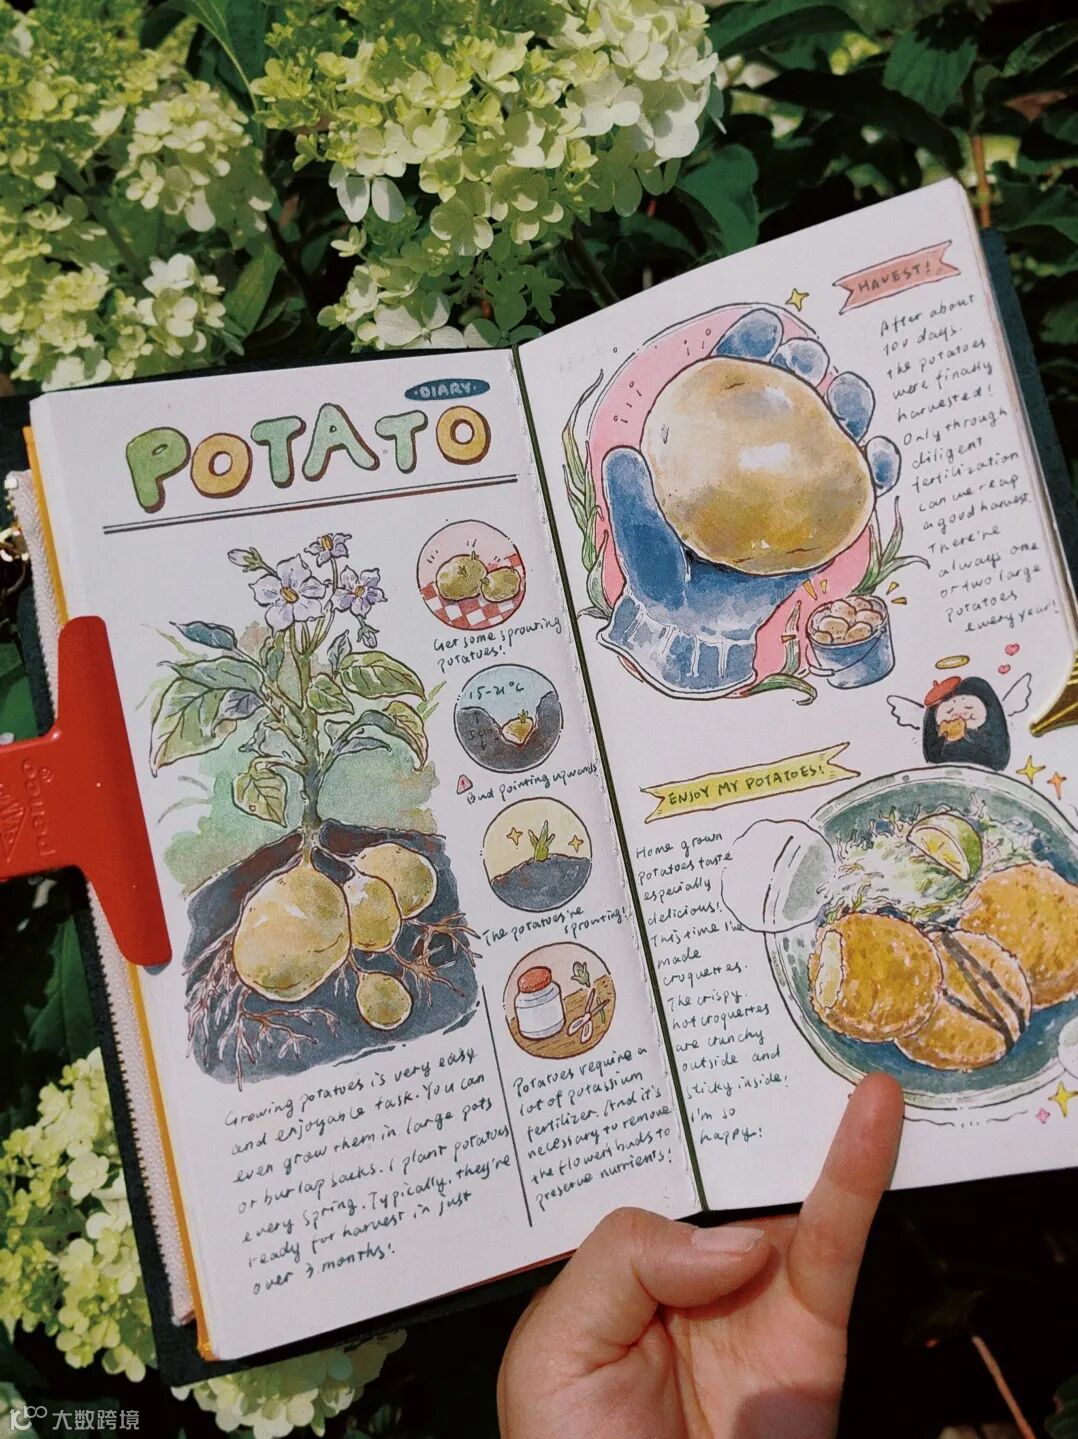 DIARY
POTATO
Get some sprouting
potatoes!
15-21°C
5cm
Bud pointing upwards
The potatoes're
sprouting!
Potatoes require a
lot of potassium
fertilizer. And it's
necessary to remove
the flower buds to
preserve nutrients!
Growing potatoes is very easy
and enjoyable task. You can
even grow them in large pots
or burlap sacks. I plant potatoes
every spring. Typically, they're
ready for harvest in just
over 3 months!
HAVEST!
After about
100 days.
the potatoes
were finally
harvested!
Only through
diligent
fertilization
can we reap
a good harvest
There're
always one
or two large
potatoes
every year!
ENJOY MY POTATOES!
Home grown
potatoes taste
especially
delicious!
This time I've
made
croquettes.
The crispy.
hot croquettes
are crunchy
outside and
sticky inside!
I'm so
happy!
penco
大数跨境